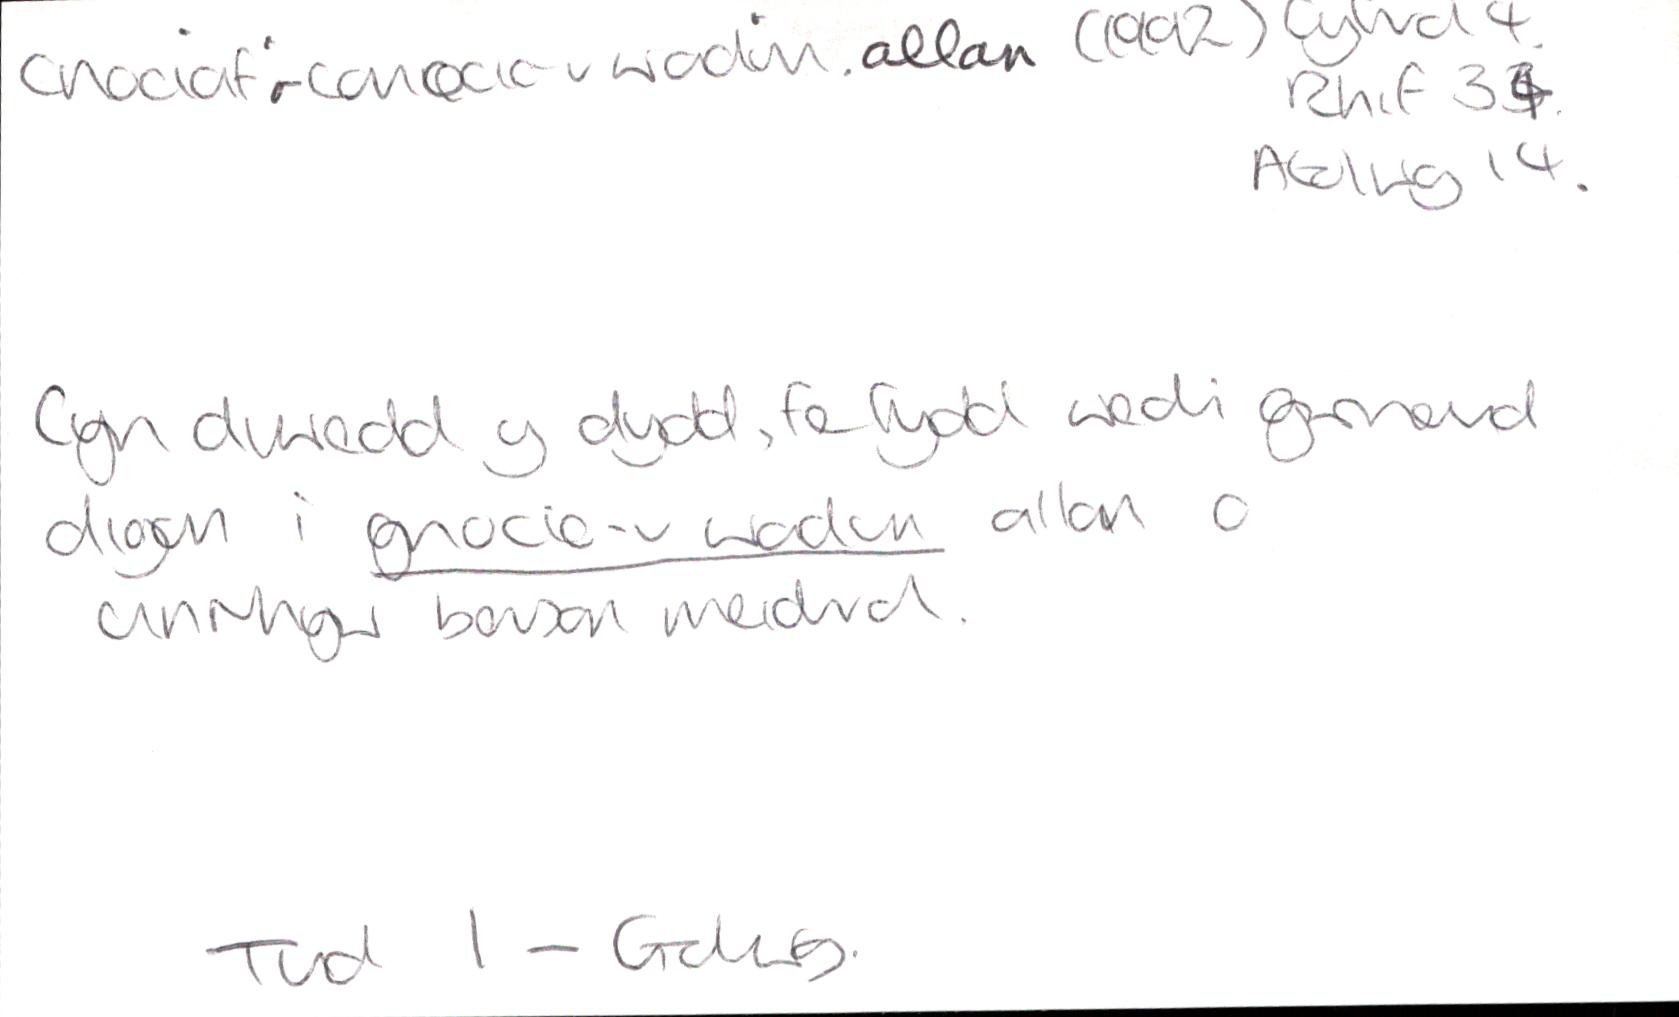 cnociaf: cnocio-r wadin allan (1992) Cyfrol 4.
Rhif 34.
Golwg 14.
Cyn diwedd y dydd, fe fydd wedi gwneud
digon i gnocio-r wadin allan o
unrhyw berson meidrol.
Tud 1 - Golwg.